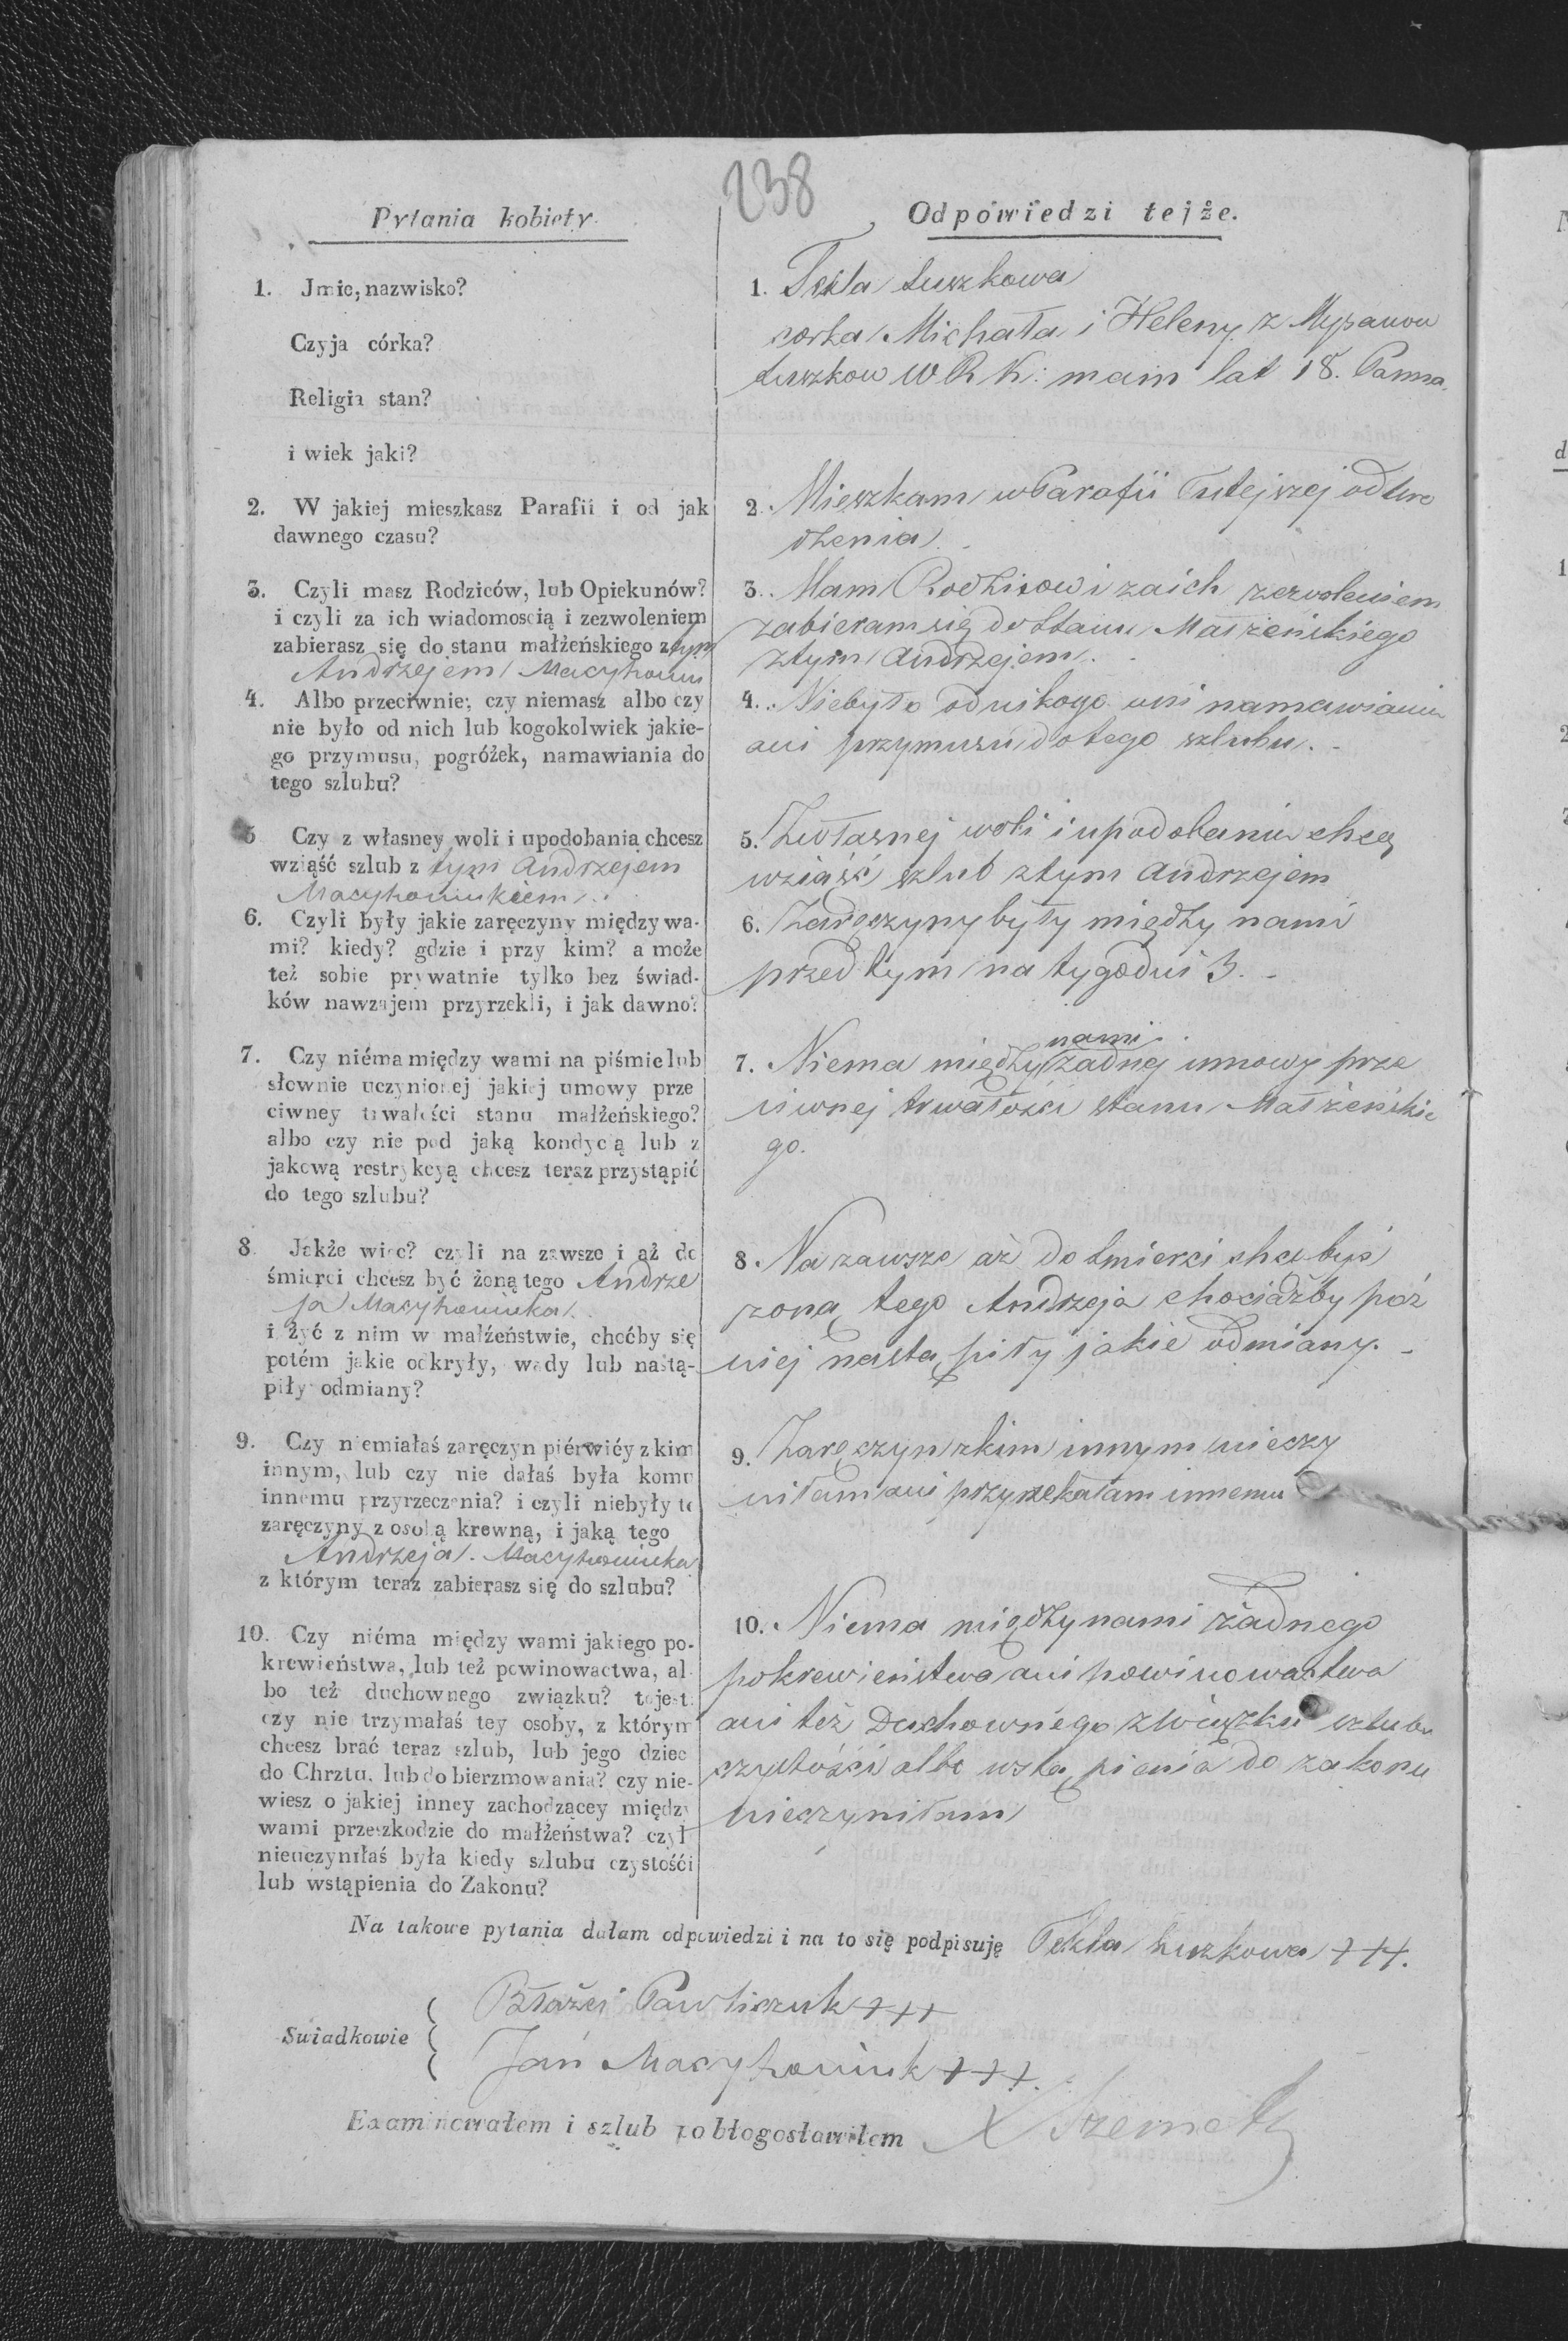 238
Pytania kobiety.
1. Jmie, nazwisko?
Czyja córka?
Religia stan?
i wiek jaki?
2. W jakiej mieszkasz Parafii i od jak
dawnego czasu?
3. Czyli masz Rodziców, lub Opiekunów?
i czyli za ich wiadomoscią i zezwoleniem
zabierasz się do stanu małżeńskiego z tym
Andrzejem
4. Albo przeciwnie; czy niemasz albo czy
nie było od nich lub kogokolwiek jakie-
go przymusu, pogróżek, namawiania do
tego szlubu?
5 Czy z własney woli i upodobania chcesz
wziąść szlub z tym Andrzejem
Macyhoniukiem
6. Czyli były jakie zaręczyny między wa-
mi? kiedy? gdzie i przy kim? a może
też sobie prywatnie tylko bez świad-
ków nawzajem przyrzekli, i jak dawno?
7. Czy niéma między wami na piśmie lub
słownie uczynionej jakiej umowy prze
ciwney trwałości stanu małżeńskiego?
albo czy nie pod jaką kondycią lub z
jakową restrykcyą chcesz teraz przystąpić
do tego szlubu?
8 Jakże więc? czyli na zawsze i aż do
śmierci chcesz być żoną tego Andrze
ja Macyhoniuka
i żyć z nim w małżeństwie, choćby się
potém jakie odkryły, wady lub nastą-
piły odmiany?
9. Czy niemiałaś zaręczyn piérwiéy z kim
innym, lub czy nie dałaś była komu
innému przyrzeczenia? i czyli niebyły te
zaręczyny z osobą krewną, i jaką tego
Andrzeja Macyhoniuka
z którym teraz zabierasz się do szlubu?
10. Czy niéma między wami jakiego po-
krewieństwa, lub też powinowactwa, al-
bo też duchownego związku? to jest:
czy nie trzymałaś tey osoby, z którym
chcesz brać teraz szlub, lub jego dziec
do Chrztu, lub do bierzmowania? czy nie-
wiesz o jakiej inney zachodzącey między
wami przeszkodzie do małżeństwa? czyl
nieuczyniłaś była kiedy szlubu czystośći
lub wstąpienia do Zakonu?
Odpowiedzi tejże.
1. Tekla Łuszkowa
corka Michała i Heleny z
Łuszkow W R K: mam lat 18. Panna.
2. Mieszkam w Parafii Tutejszej od uro
dzenia.
3. Mam Rodzicow i za ich zezwoleniem
zabieram się do Stanu Małżeńskiego
z tym Andrzejem.
4. Niebyło od nikogo ani namawiania
ani przymusu do tego szlubu.
5. Z własnej woli i upodobania chcę
wziąść szlub z tym Andrzejem
6. Zaręczyny były między nami
przed tym na tygodni 3.
7. Niema między nami żadnej umowy prze
ciwnej trwałości stanu Małżeńskie
go.
8. Na zawsze aż do śmierci chce być
żoną tego Andrzeja chociażby póź
niej nastąpiły jakie odmiany.
9. Zaręczyn z kim innym nieczy
niłam ani przyrzekałam innemu
10. Niema między nami żadnego
pokrewieństwa ani powinowactwa
ani też Duchownego związku szlubu
czystości albo wstąpienia do zakonu
nieczyniłam
Na takowe pytania dałam odpowiedzi i na to się podpisuję Tekla Łuszkowa +++.
Swiadkowie
Błażej Pawliczuk +++
Jan Macyhoniuk +++.
Examinowałem i szlub pobłogosławiłem X